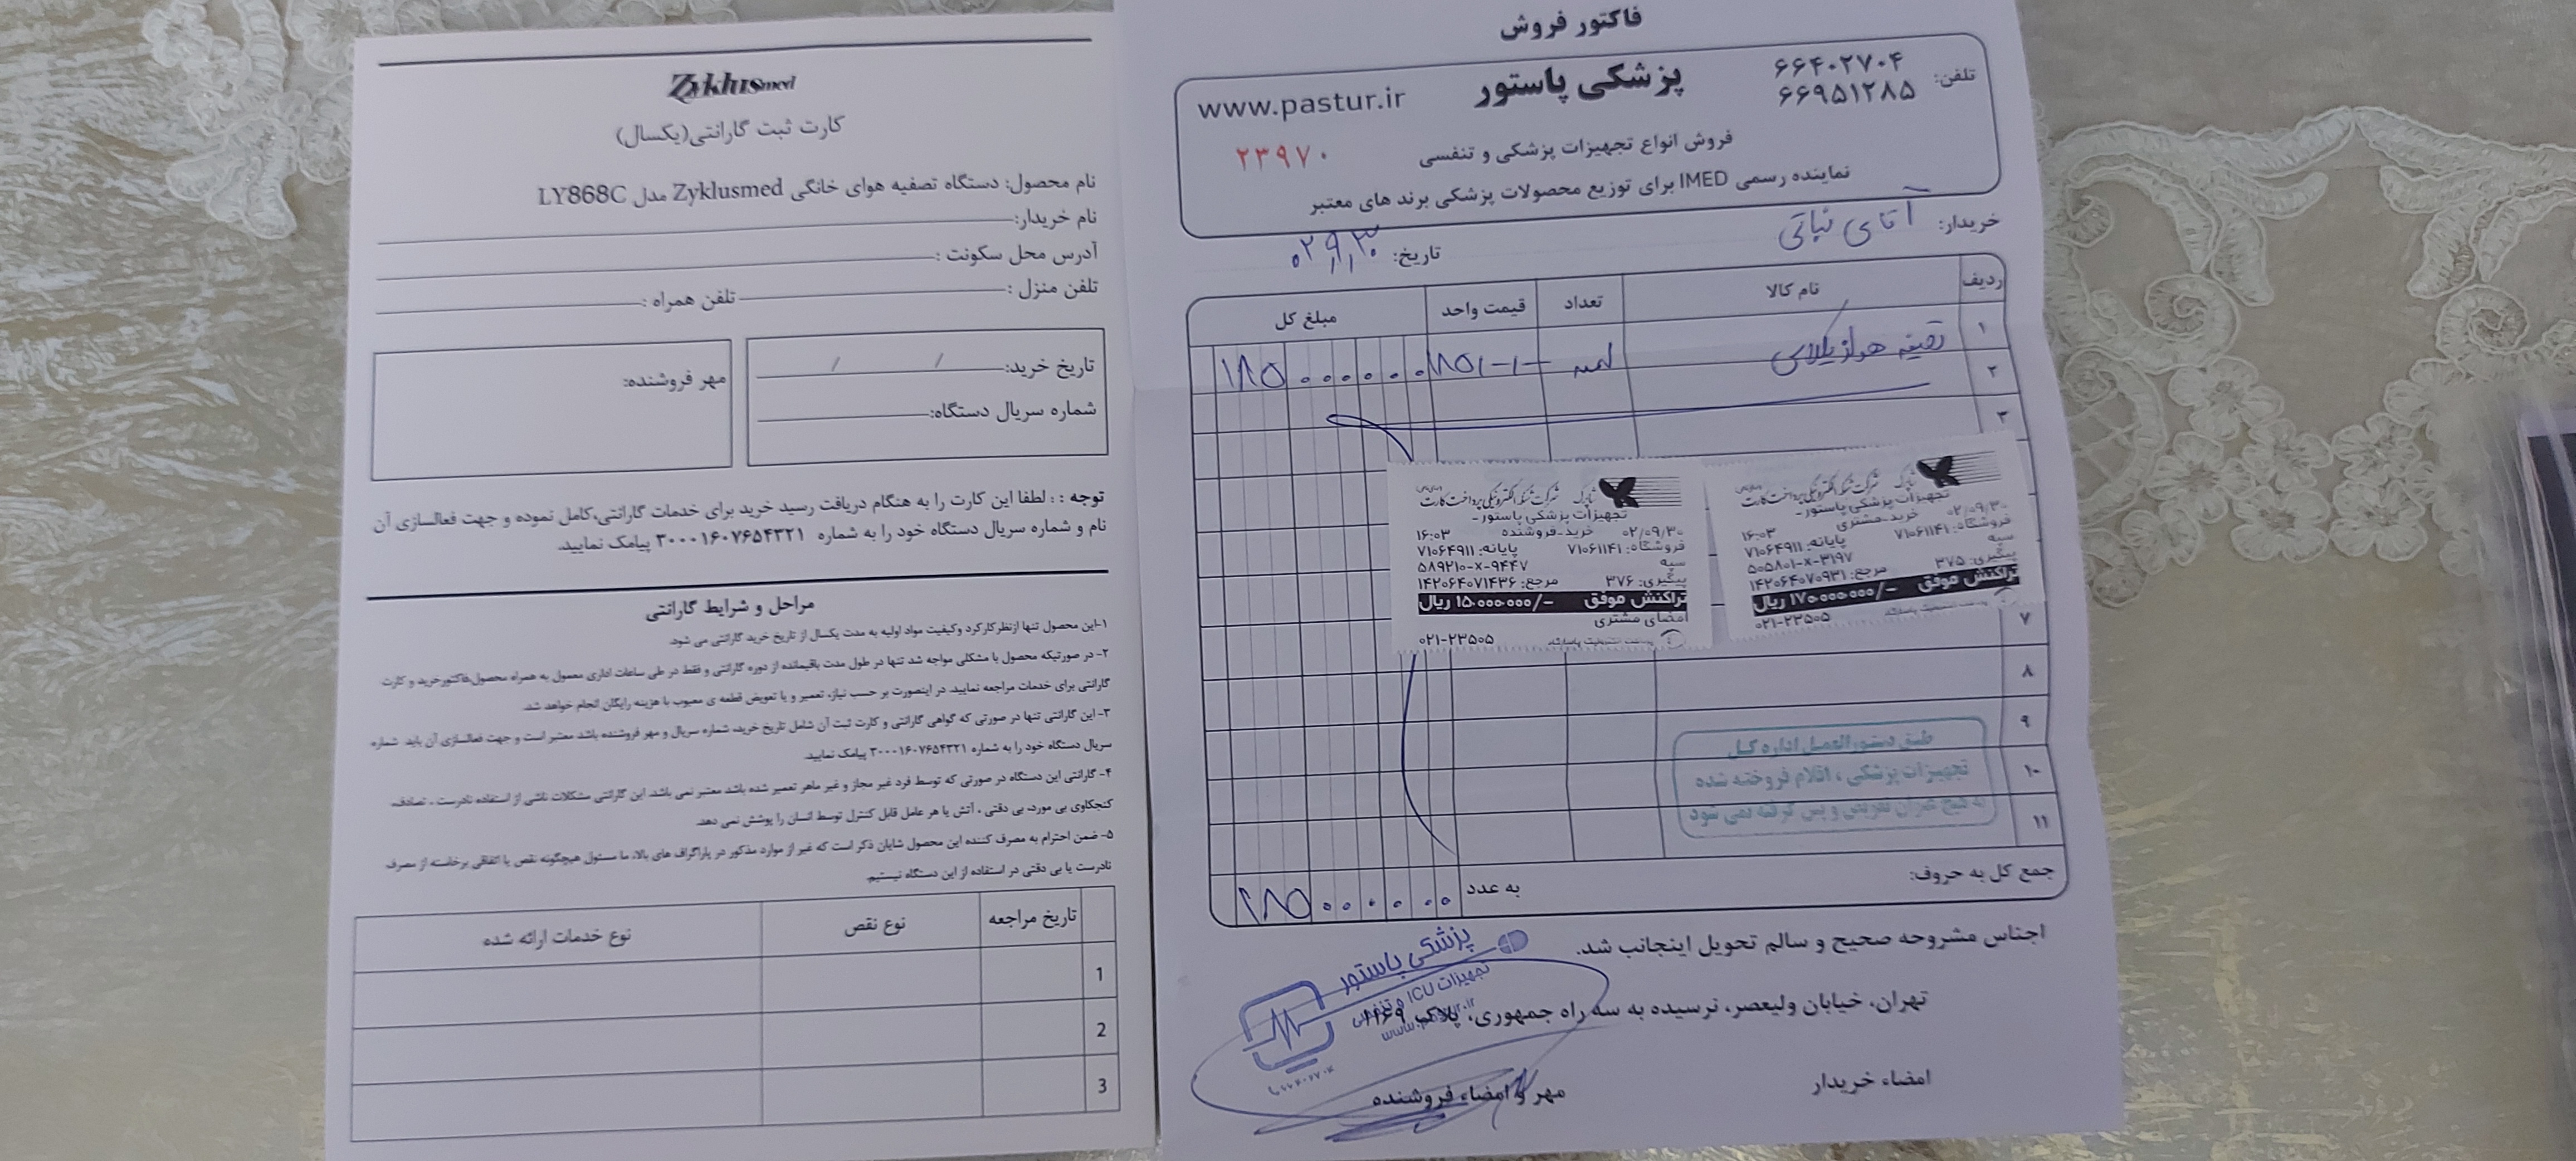 فاکتور فروش
تلفن: ۶۶۴۰۲۷۰۴
۶۶۹۵۱۲۸۵
پزشکی پاستور
www.pastur.ir
فروش انواع تجهیزات پزشکی و تنفسی
۲۳۹۷۰
نماینده رسمی IMED برای توزیع محصولات پزشکی برند های معتبر
خریدار: آقای نباتی
تاریخ: ۰۲/۹/۳۰
ردیف نام کالا تعداد قیمت واحد مبلغ کل
۱ تصفیه هوا
۲ ۱۸۵۰۰۰۰۰۰
۳
شرکت شبکه الکترونیکی پرداخت کارت
تجهیزات پزشکی پاستور-
خرید-مشتری
۰۲/۰۹/۳۰ ۱۶:۰۳
فروشگاه: ۷۱۰۶۱۱۴۱ پایانه: ۷۱۰۶۴۹۱۱
سپه ۵۰۵۸۰۱-x-۳۱۹۷
پیگیری: ۳۷۵ مرجع: ۱۴۲۰۶۴۰۷۰۹۳۱
تراکنش موفق ۱۷۰,۰۰۰,۰۰۰/- ریال
۰۲۱-۲۳۵۰۵
شرکت شبکه الکترونیکی پرداخت کارت
تجهیزات پزشکی پاستور-
خرید-فروشنده
۰۲/۰۹/۳۰ ۱۶:۰۳
فروشگاه: ۷۱۰۶۱۱۴۱ پایانه: ۷۱۰۶۴۹۱۱
سپه ۵۸۹۲۱۰-x-۹۴۴۷
پیگیری: ۳۷۶ مرجع: ۱۴۲۰۶۴۰۷۱۴۳۶
تراکنش موفق ۱۵,۰۰۰,۰۰۰/- ریال
امضای مشتری
۰۲۱-۲۳۵۰۵
۷
۸
۹
۱۰
۱۱
طبق دستورالعمل اداره کل
تجهیزات پزشکی ، اقلام فروخته شده
به هیچ عنوان تعویض و پس گرفته نمی شود
جمع کل به حروف: به عدد ۱۸۵۰۰۰۰۰۰
اجناس مشروحه صحیح و سالم تحویل اینجانب شد.
پزشکی پاستور
تجهیزات ICU و تنفسی
www.pastur.ir
تهران، خیابان ولیعصر، نرسیده به سه راه جمهوری، پلاک ۱۱۶۹
امضاء خریدار
مهر و امضاء فروشنده
Zyklusmed
کارت ثبت گارانتی(یکسال)
نام محصول: دستگاه تصفیه هوای خانگی Zyklusmed مدل LY868C
نام خریدار:
آدرس محل سکونت :
تلفن منزل : تلفن همراه :
تاریخ خرید: / /
شماره سریال دستگاه:
مهر فروشنده:
توجه : : لطفا این کارت را به هنگام دریافت رسید خرید برای خدمات گارانتی،کامل نموده و جهت فعالسازی آن
نام و شماره سریال دستگاه خود را به شماره ۳۰۰۰۱۶۰۷۶۵۴۳۲۱ پیامک نمایید.
مراحل و شرایط گارانتی
۱-این محصول تنها ازنظرکارکرد وکیفیت مواد اولیه به مدت یکسال از تاریخ خرید گارانتی می شود.
۲- در صورتیکه محصول با مشکلی مواجه شد تنها در طول مدت باقیمانده از دوره گارانتی و فقط در طی ساعات اداری معمول به همراه محصول،فاکتورخرید و کارت
گارانتی برای خدمات مراجعه نمایید. در اینصورت بر حسب نیاز، تعمیر و یا تعویض قطعه ی معیوب با هزینه رایگان انجام خواهد شد.
۳- این گارانتی تنها در صورتی که گواهی گارانتی و کارت ثبت آن شامل تاریخ خرید، شماره سریال و مهر فروشنده باشد معتبر است و جهت فعالسازی آن باید شماره
سریال دستگاه خود را به شماره ۳۰۰۰۱۶۰۷۶۵۴۳۲۱ پیامک نمایید.
۴- گارانتی این دستگاه در صورتی که توسط فرد غیر مجاز و غیر ماهر تعمیر شده باشد معتبر نمی باشد. این گارانتی مشکلات ناشی از استفاده نادرست ، تصادف،
کنجکاوی بی مورد، بی دقتی ، آتش یا هر عامل قابل کنترل توسط انسان را پوشش نمی دهد.
۵- ضمن احترام به مصرف کننده این محصول شایان ذکر است که غیر از موارد مذکور در پاراگراف های بالا، ما مسئول هیچگونه نقص یا اتفاقی برخاسته از مصرف
نادرست یا بی دقتی در استفاده از این دستگاه نیستیم.
تاریخ مراجعه نوع نقص نوع خدمات ارائه شده
1
2
3